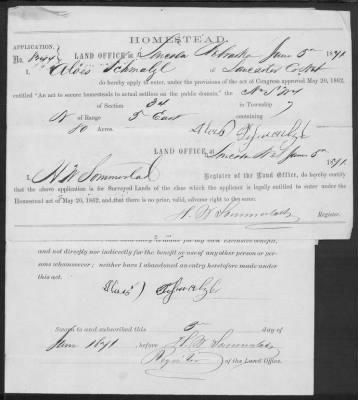 HOMESTEAD.
APPLICATION,
No. LAND OFFICE at Lincoln Nebraska June 5th 1871
I, Alois Schmalzl of Lancaster Co Neb
do hereby apply to enter, under the provisions of the act of Congress approved May 20, 1862,
entitled "An act to secure homesteads to actual settlers on the public domain," the
of Section in Township 7
N of Range 5 East containing
80 Acres.
Alois Schmalzl
LAND OFFICE at
Lincoln Neb June 5th 1871
I, Register of the Land Office, do hereby certify
that the above application is for Surveyed Lands of the class which the applicant is legally entitled to enter under the
Homestead act of May 20, 1862, and that there is no prior, valid, adverse right to the same.
Register.
and not directly nor indirectly for the benefit or use of any other person or per-
sons whomsoever; neither have I abandoned an entry heretofore made under
this act.
Alois Schmalzl
Sworn to and subscribed this 5th day of
June 1871, before
Register of the Land Office.